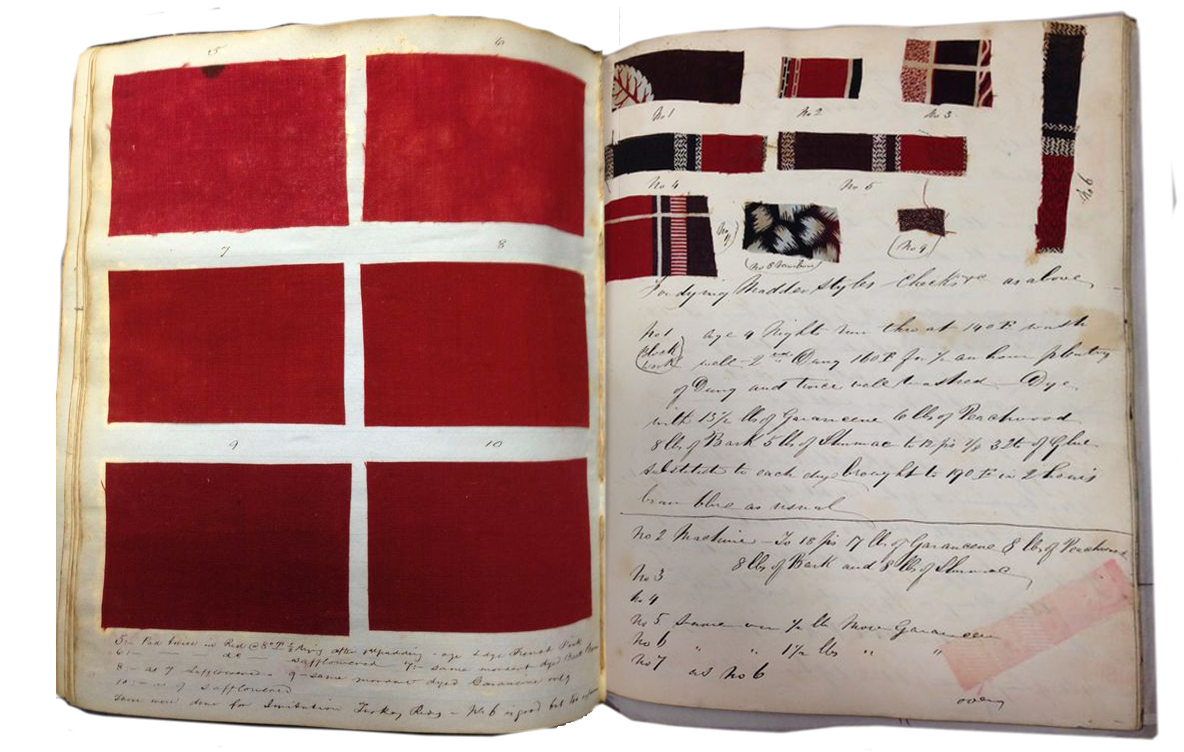 5
6
7
8
9
10
5 - Pad twice in Red @ 8° T after padding - age
6 - do - safflowered 7 - same mordant dyed Bark
8 - as 7 Safflowered 9 - same mordant dyed Garancine only
10 - as 9 Safflowered
These were done for Imitation Turkey Reds - No 6 is good but
No 1
No 2
No 3
No 4
No 5
No 6
No 7
No 8
No 9
For dying Madder Styles Checks &c as above
No 1 age 4 nights run thro at 140 F wash
Block work
well 2nd Dung 160 F for 1/2 an hour plenty
of Dung and twice well washed Dye
with 13 1/2 lbs of Garancene 6 lbs of Peachwood
8 lbs of Bark 5 lbs of Shumac to 12 ps of Glue
substitute to each dye brought to 190 F in 2 hours
bran blue as usual
No 2 Machine - To 18 ps 7 lbs of Garancene 8 lbs of Peachwood
8 lbs of Bark and 8 lbs of Shumac
No 3
No 4
No 5 Same 1/2 lb More Garancene
No 6 " " 1 1/2 lbs " "
No 7 as No 6
over